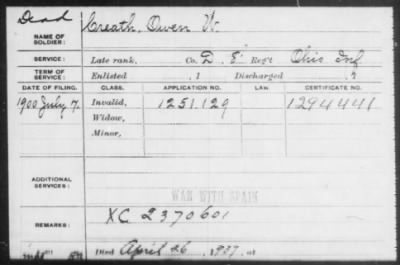 Dead
NAME OF SOLDIER: Creath, Owen W.
SERVICE: Late rank, Co. D, 8" Reg't Ohio Inf
TERM OF SERVICE: Enlisted , 1 Discharged , 1
DATE OF FILING. CLASS. APPLICATION NO. LAW. CERTIFICATE NO.
1900 July 7. Invalid, 1251.129 1294441
Widow,
Minor,
ADDITIONAL SERVICES:
WAR WITH SPAIN
REMARKS: XC 2370601
Died April 26, 1937, at